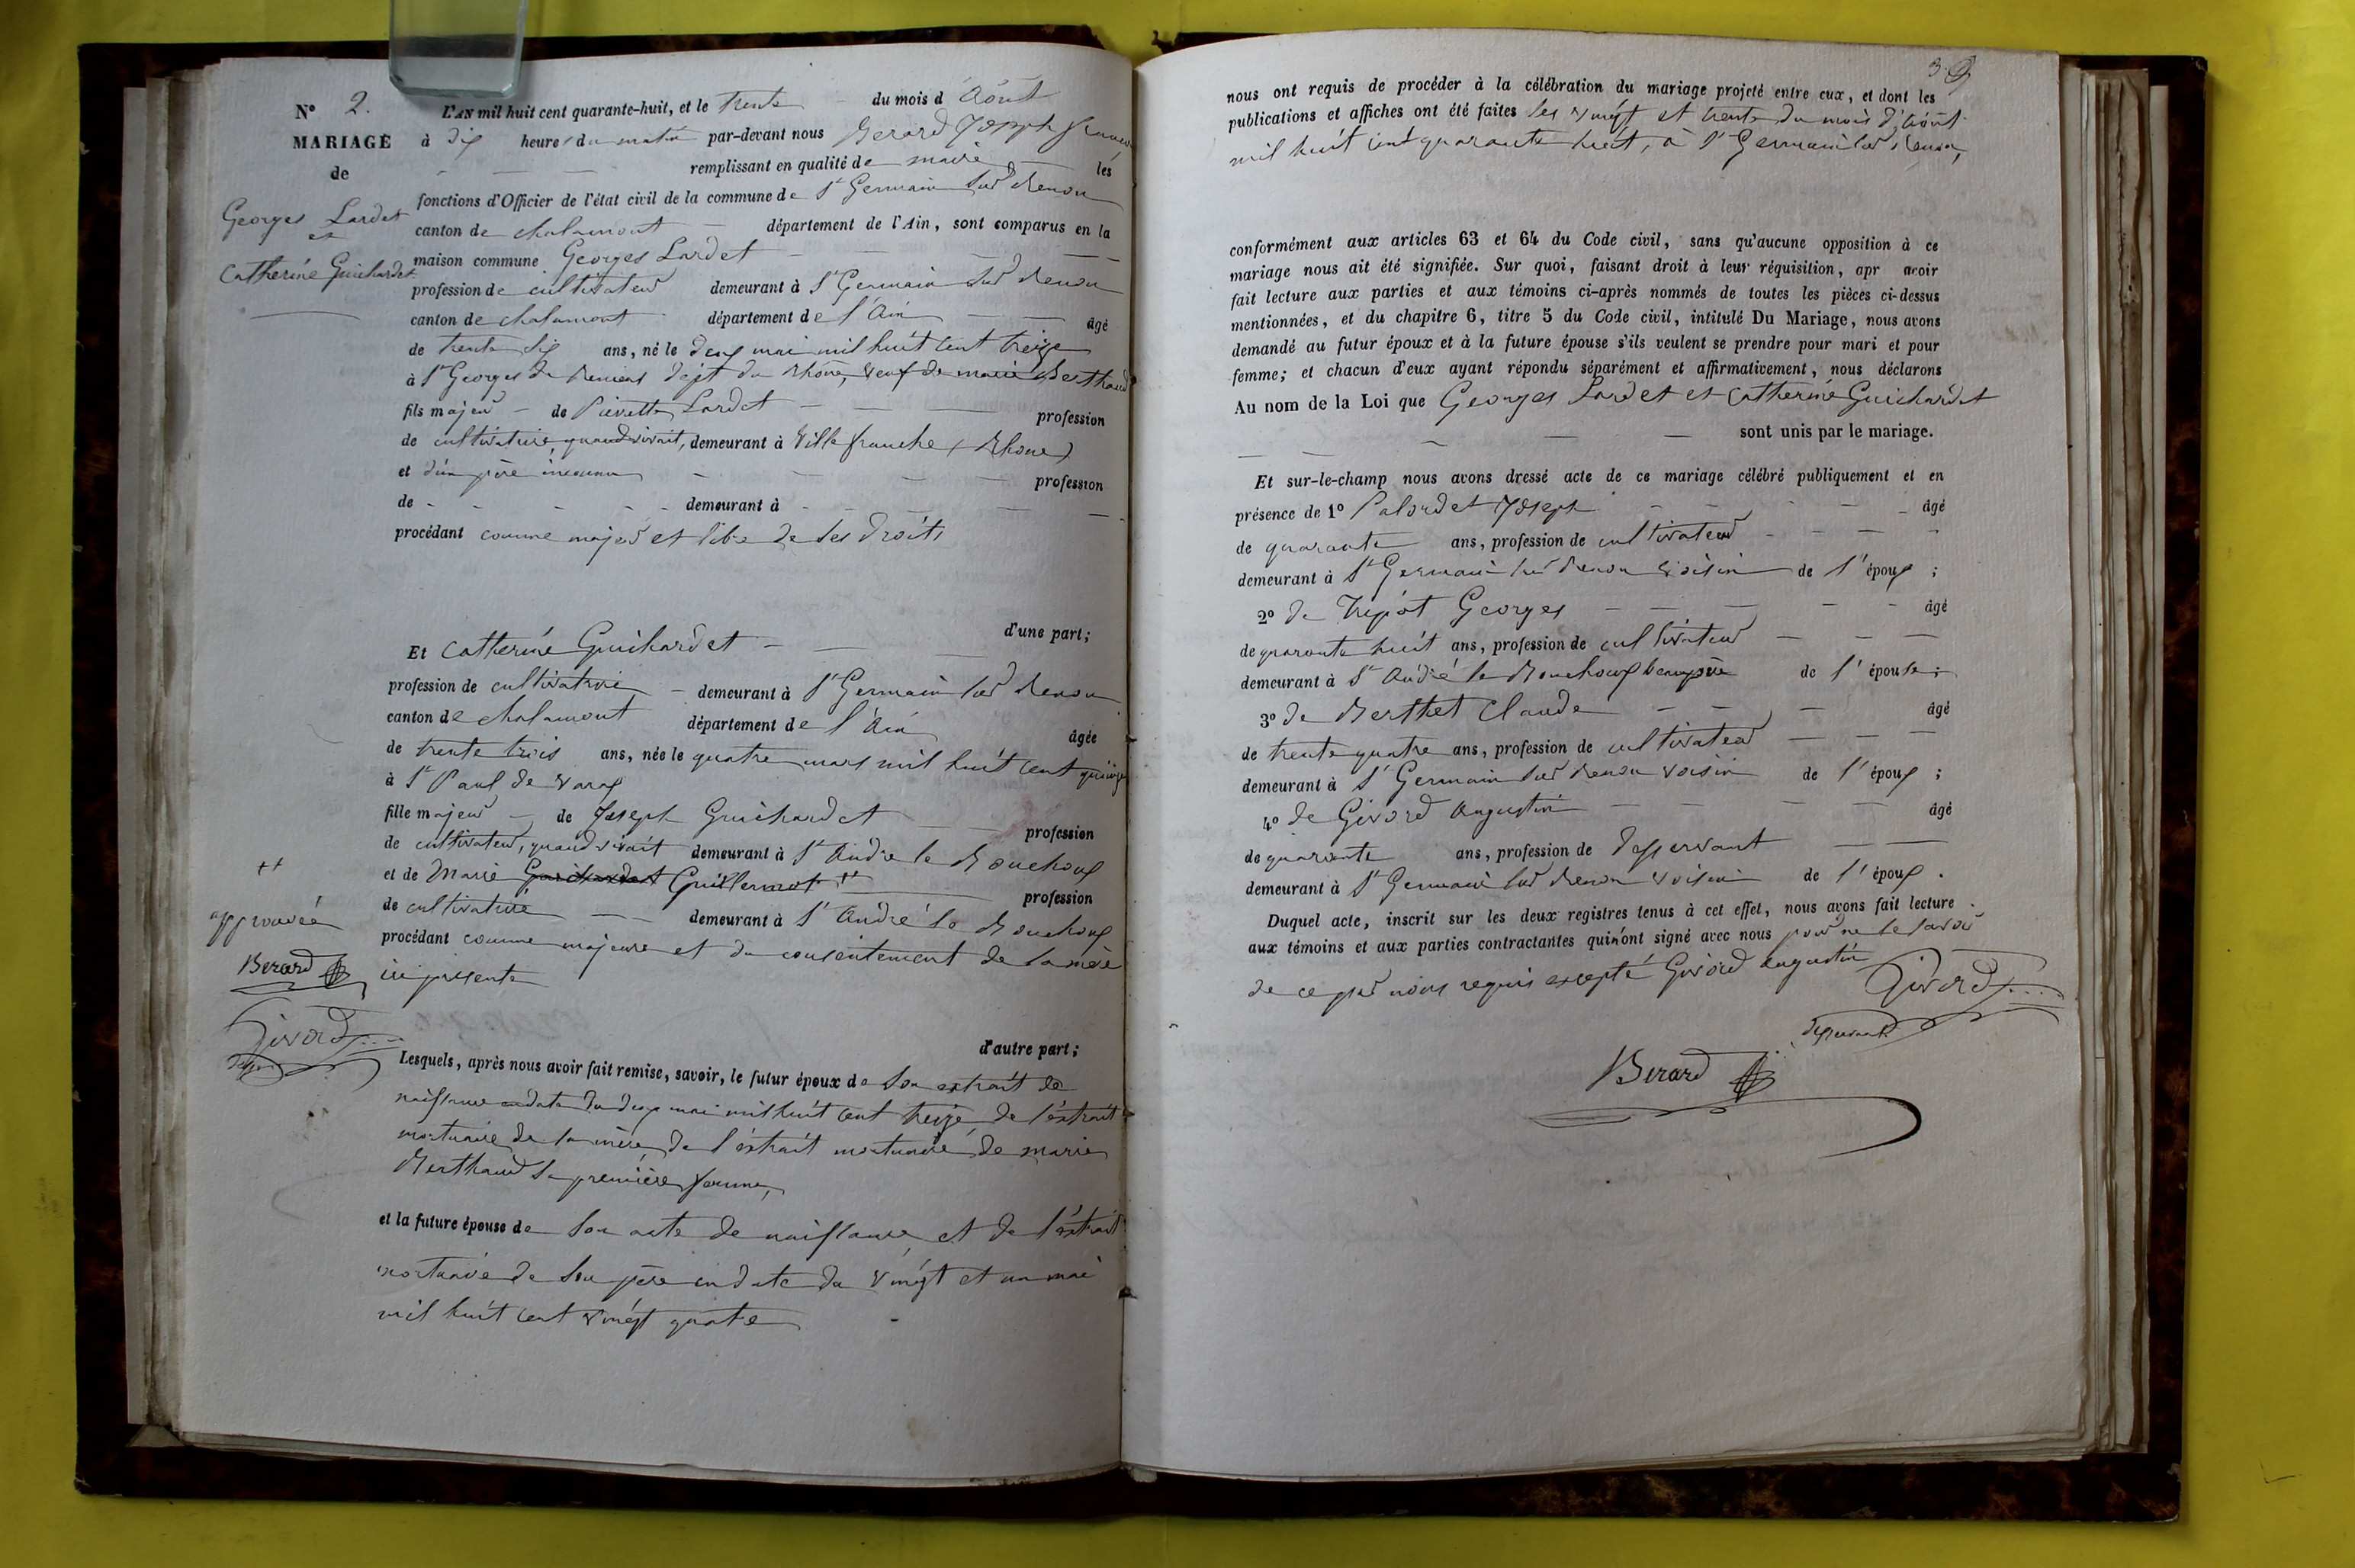 N° 2.
MARIAGE
de
Georges Lardet
et
Catherine Guichardet
L'AN mil huit cent quarante-huit, et le trente du mois d'Août
à dix heures du matin par-devant nous Berard Joseph
remplissant en qualité de maire les
fonctions d'Officier de l'état civil de la commune de St Germain sur Renon
canton de chalamont département de l'Ain, sont comparus en la
maison commune Georges Lardet
profession de cultivateur demeurant à St Germain sur Renon
canton de chalamont département de l'Ain âgé
de trente six ans, né le deux mai mil huit cent treize
à St Georges de Reneins dépt du Rhône, veuf de marie Berthaud
fils majeur de Pierrette Lardet profession
de cultivatrice, quand vivait, demeurant à Villefranche (Rhone)
et d'un père inconnu profession
de demeurant à
procédant comme majeur et libre de ses droits
d'une part;
Et Catherine Guichardet
profession de cultivatrice demeurant à St Germain sur Renon
canton de chalamont département de l'Ain âgée
de trente trois ans, née le quatre mars mil huit cent quinze
à St Paul de Varax
fille majeur de Joseph Guichardet profession
de cultivateur, quand vivait demeurant à St André le Bouchoux
et de Marie Guichardet Guillermot ++ profession
de cultivatrice demeurant à St André le Bouchoux
procédant comme majeure et du consentement de sa mère
ici présente
++
approuvée
Berard
Givord
d'autre part;
Lesquels, après nous avoir fait remise, savoir, le futur époux de son extrait de
naissance en date du deux mai mil huit cent treize, de l'extrait
mortuaire de sa mère, de l'extrait mortuaire de marie
Berthaud sa première femme,
et la future épouse de son acte de naissance, et de l'extrait
mortuaire de son père en date du vingt et un mai
mil huit cent vingt quatre
nous ont requis de procéder à la célébration du mariage projeté entre eux, et dont les
publications et affiches ont été faites les vingt et trente du mois d'Août
mil huit cent quarante huit, à St Germain sur Renon,
conformément aux articles 63 et 64 du Code civil, sans qu'aucune opposition à ce
mariage nous ait été signifiée. Sur quoi, faisant droit à leur réquisition, apr avoir
fait lecture aux parties et aux témoins ci-après nommés de toutes les pièces ci-dessus
mentionnées, et du chapitre 6, titre 5 du Code civil, intitulé Du Mariage, nous avons
demandé au futur époux et à la future épouse s'ils veulent se prendre pour mari et pour
femme; et chacun d'eux ayant répondu séparément et affirmativement, nous déclarons
Au nom de la Loi que Georges Lardet et Catherine Guichardet
sont unis par le mariage.
Et sur-le-champ nous avons dressé acte de ce mariage célébré publiquement et en
présence de 1° Palordet Joseph âgé
de quarante ans, profession de cultivateur
demeurant à St Germain sur Renon voisin de l'époux;
2° de Tripot Georges âgé
de quarante huit ans, profession de cultivateur
demeurant à St André le Bouchoux beaupère de l'épouse;
3° de Berthet Claude âgé
de trente quatre ans, profession de cultivateur
demeurant à St Germain sur Renon voisin de l'époux;
4° de Givord Augustin âgé
de quarante ans, profession de desservant
demeurant à St Germain sur Renon voisin de l'époux.
Duquel acte, inscrit sur les deux registres tenus à cet effet, nous avons fait lecture
aux témoins et aux parties contractantes qui n'ont signé avec nous pour ne le savoir
de ce par nous requis excepté Givord Augustin
Givord
desservant
Berard